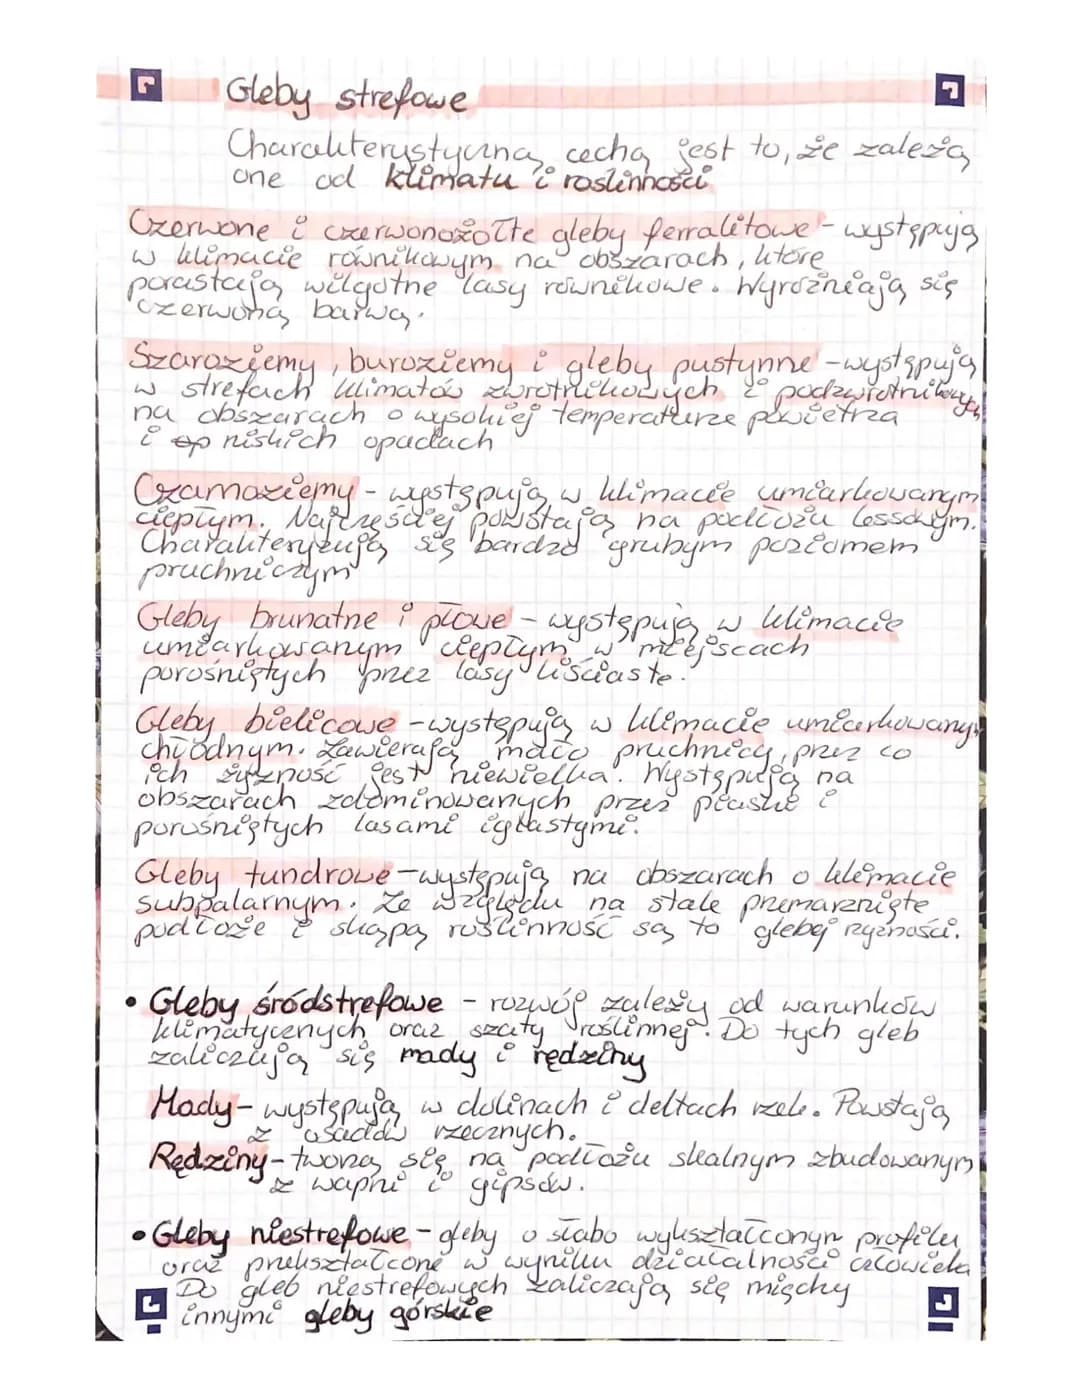 Gleby strefowe
Charakterystyczną cechą jest to, że zależą
one od klimatu i roslinności
Czerwone i czerwonożołte gleby ferralitowe - występują
w klimacie równikowym na obszarach, które
porastają wilgotne lasy równikowe. Wyrózniają się
czerwoną barwą.
Szaroziemy, buroziemy i gleby pustynne - występują
w strefach klimatów zwrotnikowych i podzwrotnikowych
na obszarach o wysokiej temperaturze powietrza
i niskich opadach
Czarnoziemy - występują w klimacie umiarkowanym
ciepłym. Najczęściej powstają na podłożu lessowym.
Charakteryzują się bardzo grubym poziomem
pruchniczym
Gleby brunatne i płowe - występują w klimacie
umiarkowanym ciepłym w miejscach
porośniętych przez lasy liściaste.
Gleby bielicowe - występują w klimacie umiarkowanym
chłodnym. Zawierają mało pruchnicy, przez co
ich żyzność jest niewielka. Występują na
obszarach zdominowanych przez piaski i
porośniętych lasami iglastymi.
Gleby tundrowe - występują na obszarach o klimacie
subpalarnym. Ze względu na stale przemarznięte
podłoże i skąpą roślinność są to gleby żyzności.
• Gleby śródstrefowe - rozwój zależy od warunków
klimatycznych oraz szaty roślinnej. Do tych gleb
zaliczują się mady i rędziny
Mady - występują w dolinach i deltach rzek. Powstają
z osadów rzecznych.
Rędziny - tworzą się na podłożu skalnym zbudowanym
z wapni i gipsów.
• Gleby niestrefowe - gleby o słabo wykształconym profilu
oraz przekształcone w wyniku działalności człowieka
Do gleb niestrefowych zaliczają się między
innymi gleby górskie